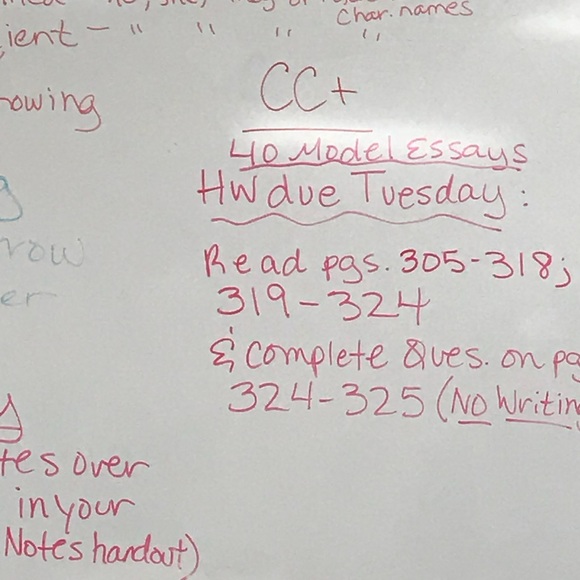 he, she, they or
char. names
ient - " " " "
owing
CC+
40 Model Essays
HW due Tuesday:
Read pgs. 305-318;
319-324
& complete Ques. on pg
324-325 (NO Writin
row
er
tes over
in your
Notes handout)